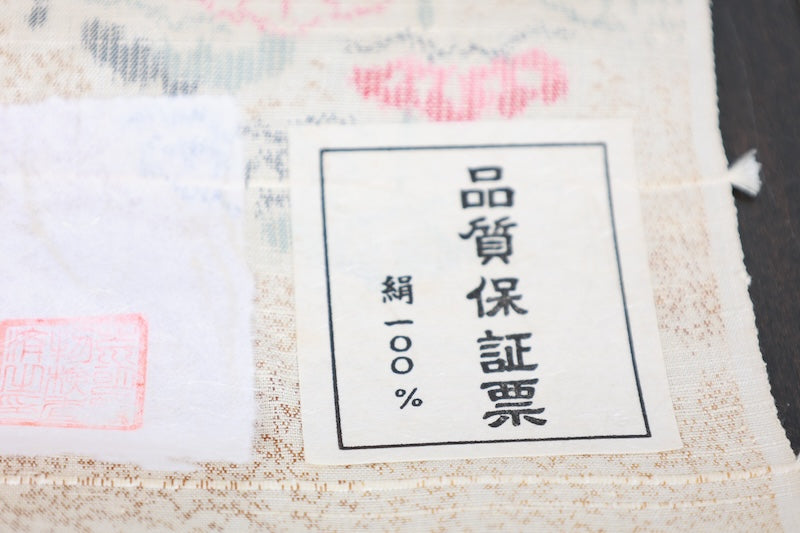 品質保証票
絹一〇〇%